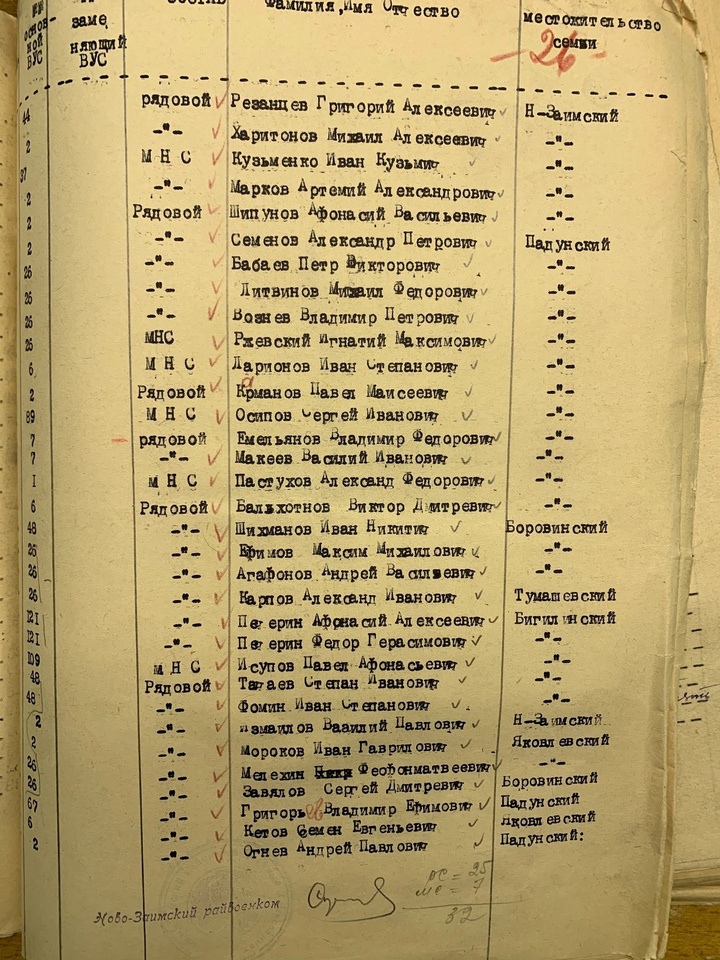 №№ основ- ной ВУС | И заме няющий ВУС | состав | Фамилия, Имя Отчество | местожительство семьи
-26-
44 рядовой ✓ Резанцев Григорий Алексеевич ✓ Н-Заимский
2 -"- ✓ Харитонов Михаил Алексеевич ✓ -"-
37 М Н С ✓ Кузьменко Иван Кузьмич ✓ -"-
2 -"- ✓ Марков Артемий Александрович ✓ -"-
2 Рядовой ✓ Шипунов Афонасий Васильевич ✓ -"-
2 -"- ✓ Семенов Александр Петрович ✓ Падунский
26 -"- ✓ Бабаев Петр Викторович ✓ -"-
26 -"- ✓ Литвинов Михаил Федорович ✓ -"-
26 -"- ✓ Вознев Владимир Петрович ✓ -"-
26 МНС ✓ Ржевский Игнатий Максимович ✓ -"-
6 М Н С ✓ Ларионов Иван Степанович ✓ -"-
2 Рядовой ✓ Карманов Павел Маисеевич ✓ -"-
89 М Н С ✓ Осипов Сергей Иванович ✓ -"-
7 - рядовой Емельянов Владимир Федорович ✓ -"-
7 -"- ✓ Макеев Василий Иванович ✓ -"-
I М Н С ✓ Пастухов Александ Федорович ✓ -"-
6 Рядовой ✓ Бальхотнов Виктор Дмитревич ✓ -"-
48 -"- ✓ Шихманов Иван Никитич ✓ Боровинский
26 -"- ✓ Ефимов Максим Михаилович ✓ -"-
26 -"- ✓ Агафонов Андрей Васильевич ✓ -"-
26 -"- ✓ Карпов Александ Иванович ✓ Тумашевский
121 -"- ✓ Пегерин Афонасий Алексеевич ✓ Бигилинский
121 -"- ✓ Пегерин Федор Герасимович ✓ -"-
109 М Н С ✓ Исупов Павел Афонасьевич ✓ -"-
48 Рядовой ✓ Тагаев Степан Иванович ✓ -"-
48 -"- ✓ Фомин Иван Степанович ✓ -"-
2 -"- ✓ Измаилов Василий Павлович ✓ Н-Заимский
2 -"- ✓ Мороков Иван Гаврилович ✓ Яковлевский
26 -"- ✓ Мелехин Феофонматвеевич ✓ -"-
26 -"- ✓ Завялов Сергей Дмитревич ✓ Боровинский
67 -"- ✓ Григорьев Владимир Ефимович ✓ Падунский
6 -"- ✓ Кетов Семен Евгеньевич ✓ Яковлевский
2 -"- ✓ Огнев Андрей Павлович ✓ Падунский:
рс = 25
мс = 7
32
Ново-Заимский райвоенком